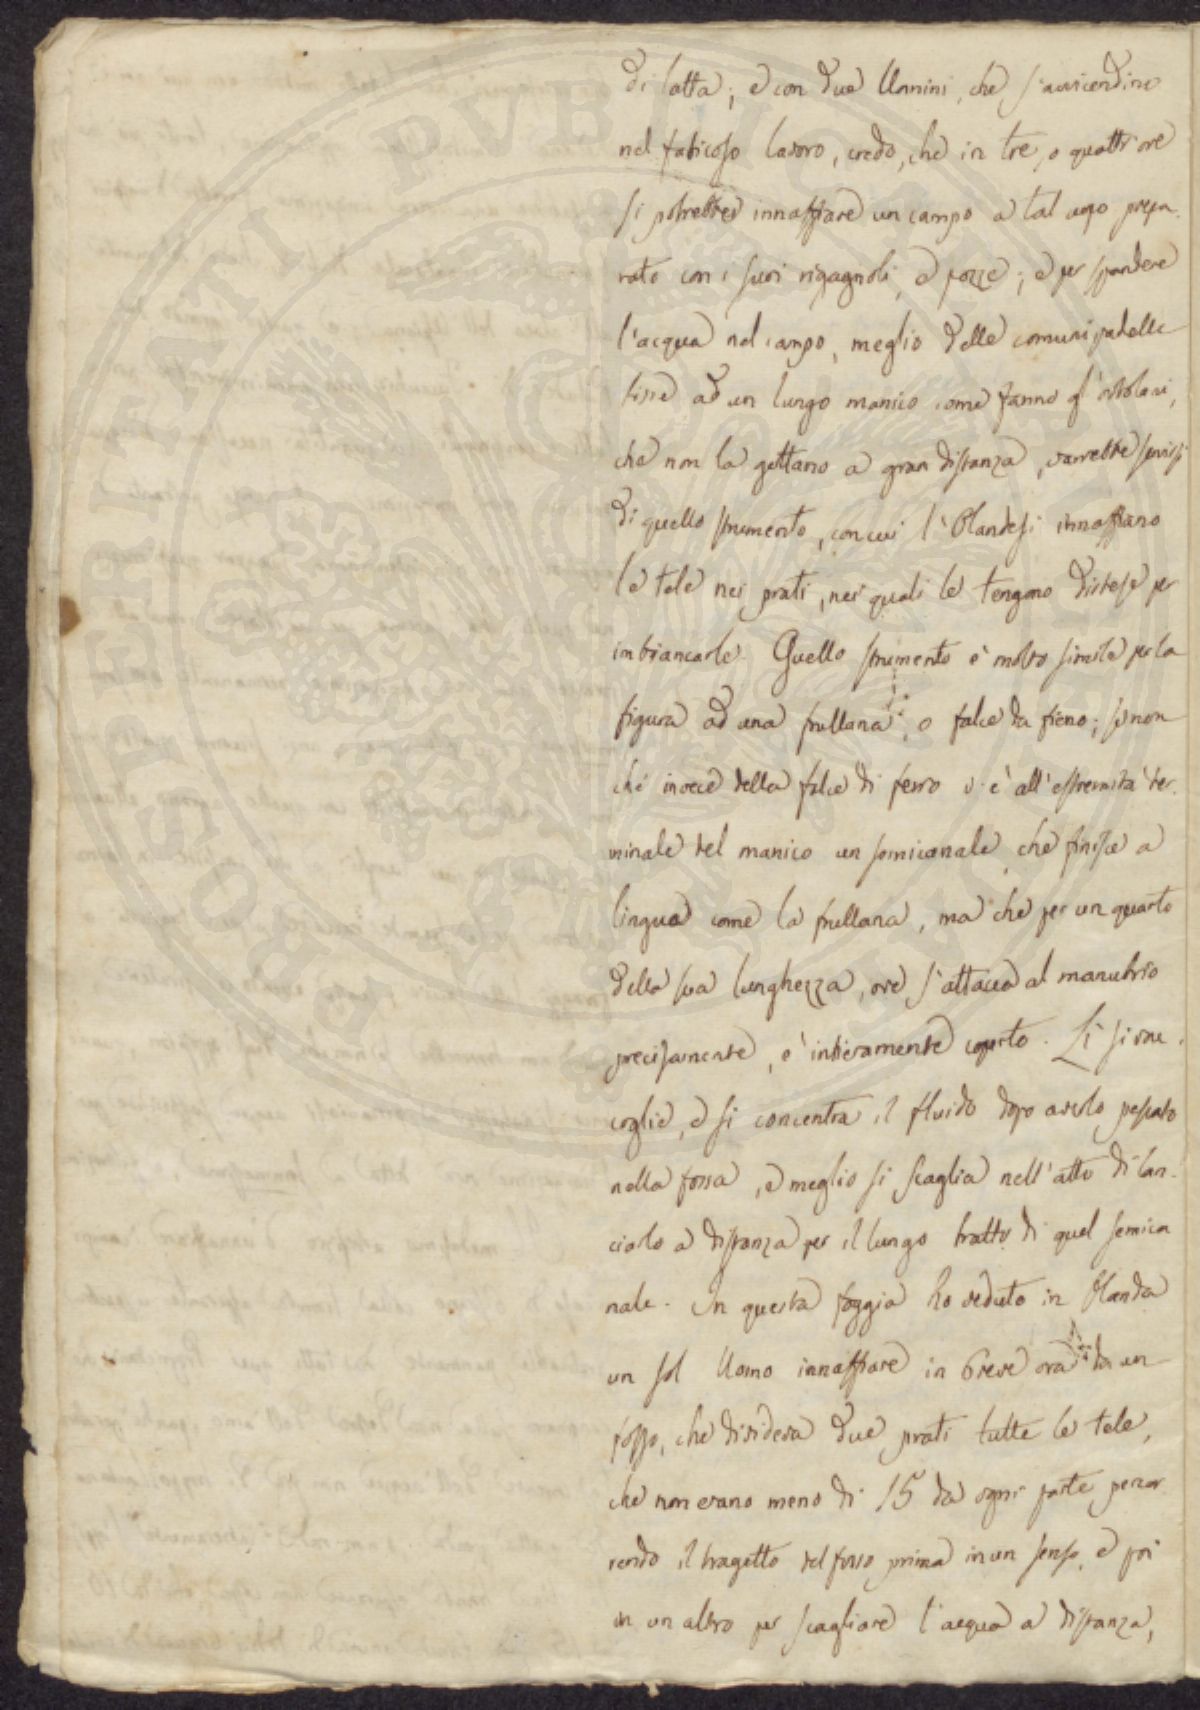 di latta; e con due Uomini, che s'avvicendino
nel faticoso lavoro, credo, che in tre, o quattr'ore
si potrebbe innaffiare un campo a tal uopo prepa-
rato con i suoi rigagnoli, e pozze; e per spandere
l'acqua nel campo, meglio delle comuni padelle
fisse ad un lungo manico come fanno gl'ortolani,
che non la gettano a gran distanza, varrebbe servirsi
di quello strumento, con cui l'Olandesi innaffiano
le tele nei prati, nei quali le tengano distese per
imbiancarle. Quello strumento è molto simile per la
figura ad una frullana, o falce da fieno; se non
che invece della falce di ferro v'è all'estremità ter-
minale del manico un semicanale, che finisce a
lingua come la frullana, ma che per un quarto
della sua lunghezza, ove s'attacca al manubrio
precisamente, è intieramente coperto. Lì si rac-
coglie, e si concentra il fluido dopo averlo pescato
nella fossa, e meglio si scaglia nell'atto di lan-
ciarlo a distanza per il lungo tratto di quel semica
nale. In questa foggia ho veduto in Olanda
un sol Uomo innaffiare in breve ora da un
fosso, che divideva due prati tutte le tele,
che non erano meno di 15 da ogni parte percor
rendo il tragetto del fosso prima in un senso, e poi
in un altro per scagliare l'acqua a distanza,
PROSPERITATI PVBLICAE